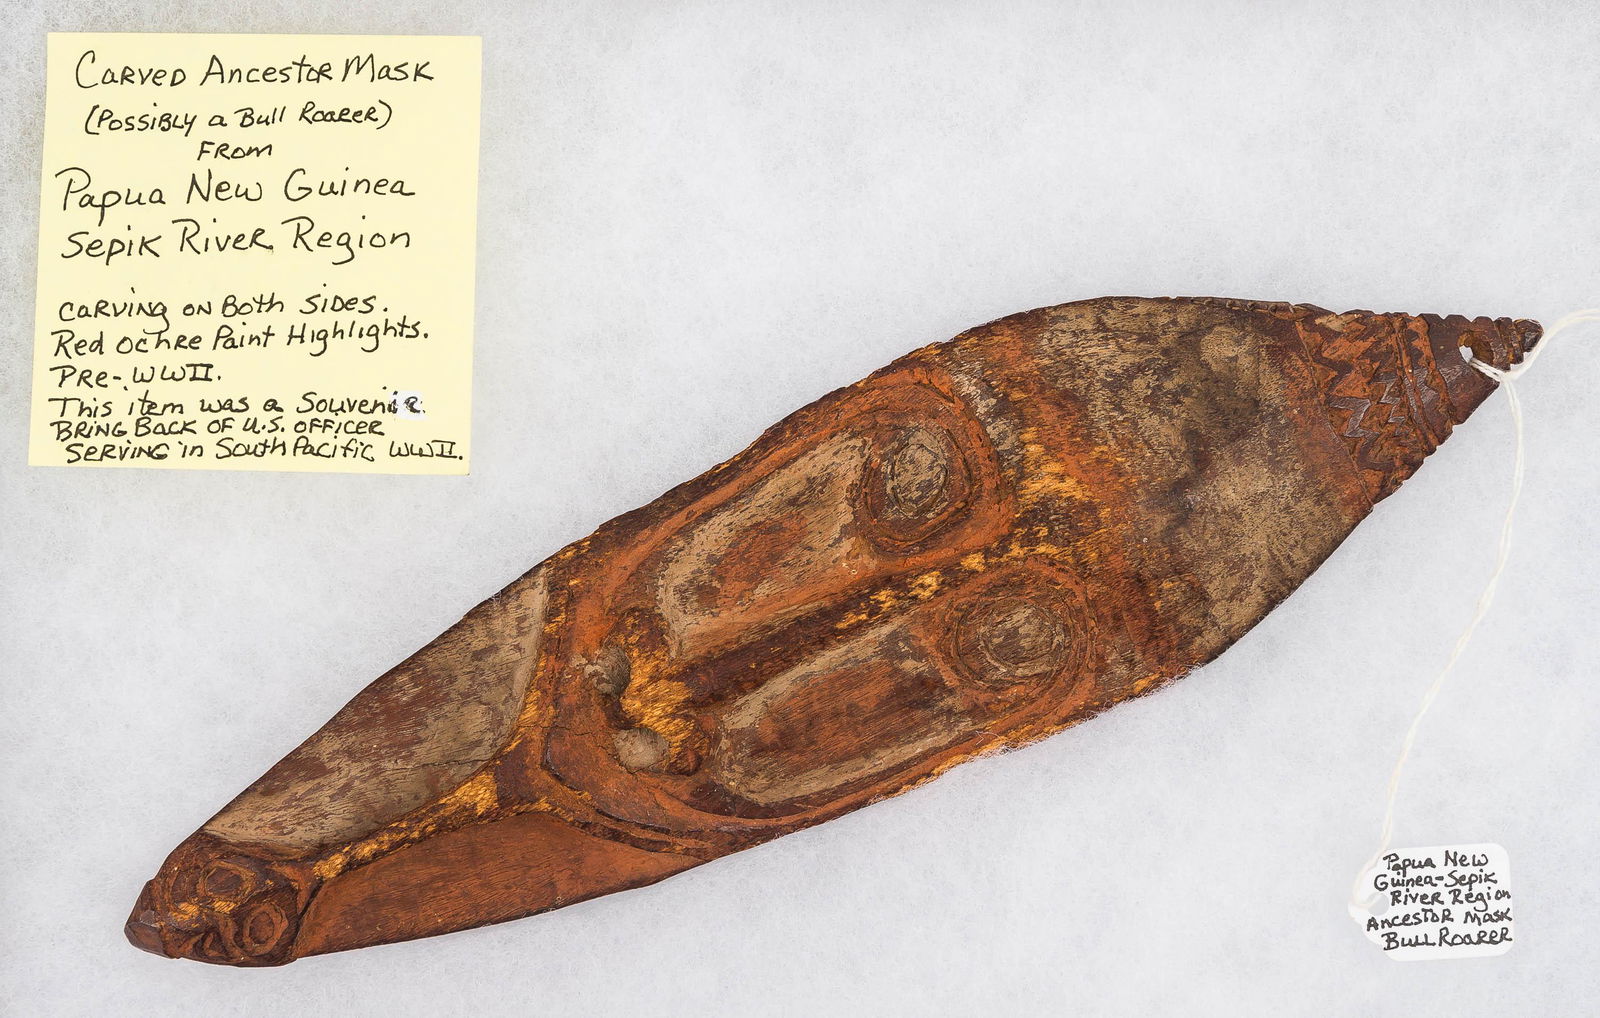 Carved Ancestor Mask
(Possibly a Bull Roarer)
From
Papua New Guinea
Sepik River Region
Carving on Both Sides.
Red Ochre Paint Highlights.
Pre-WWII.
This item was a Souvenir
Bring Back of U.S. Officer
Serving in South Pacific WWII.
Papua New
Guinea-Sepik
River Region
Ancestor Mask
Bull Roarer